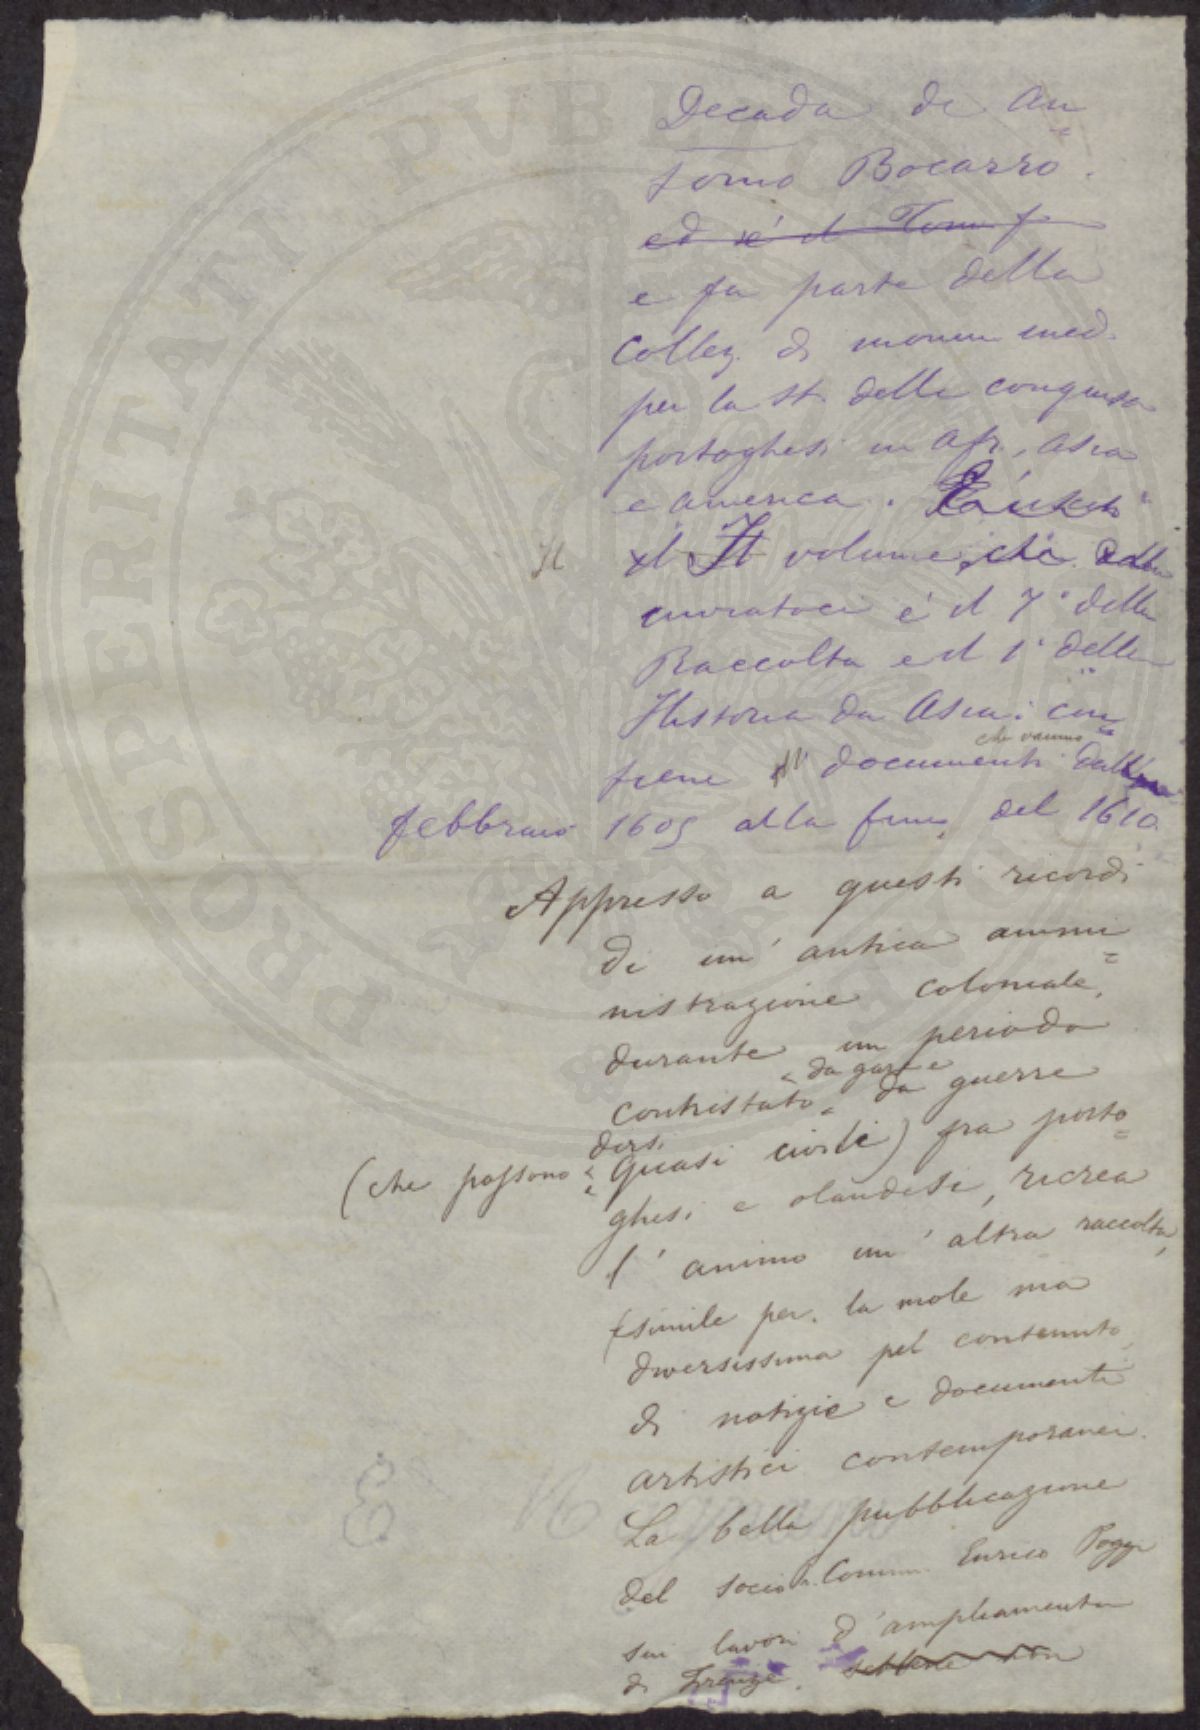 Decada de An=
tonio Bocarro.
ed è il Tomo
e fa parte della
Collez. di monum ined.
per la st. delle conquista
portoghesi in Afr., Asia
e America.
Il
Il volume, che
inviatoci è il 7° della
Raccolta e il 1° della
Historia da Asia: con=
che vanno
tiene documenti dal
febbraio 1605 alla fine del 1610
Appresso a questi ricordi
di un' antica ammi=
nistrazione coloniale,
durante un periodo
da gare e
contristato da guerre
dirsi
(che possono quasi civili) fra porto=
ghesi e olandesi, ricrea
l' animo un' altra raccolta,
(simile per la mole ma
diversissima pel contenuto,
di notizie e documenti
artistici contemporanei.
La bella pubblicazione
del socio Comm. Enrico Poggi
sui lavori d'ampliamento
di Firenze. sebbene non
PROSPERITATI PVBLICAE